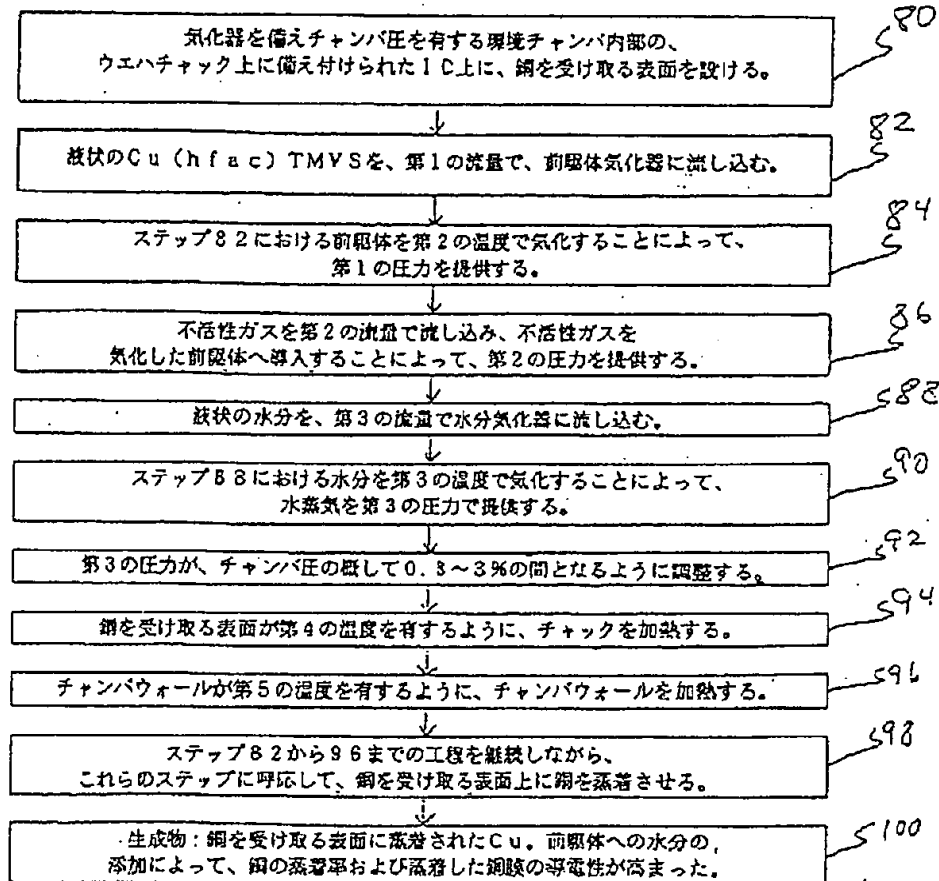 気化器を備えチャンバ圧を有する環境チャンバ内部の、
ウエハチャック上に備え付けられたIC上に、銅を受け取る表面を設ける。
80
液状のCu(hfac)TMVSを、第1の流量で、前駆体気化器に流し込む。
82
ステップ82における前駆体を第2の温度で気化することによって、
第1の圧力を提供する。
84
不活性ガスを第2の流量で流し込み、不活性ガスを
気化した前駆体へ導入することによって、第2の圧力を提供する。
86
液状の水分を、第3の流量で水分気化器に流し込む。
88
ステップ88における水分を第3の温度で気化することによって、
水蒸気を第3の圧力で提供する。
90
第3の圧力が、チャンバ圧の概して0.3~3%の間となるように調整する。
92
銅を受け取る表面が第4の温度を有するように、チャックを加熱する。
94
チャンバウォールが第5の温度を有するように、チャンバウォールを加熱する。
96
ステップ82から96までの工程を継続しながら、
これらのステップに呼応して、銅を受け取る表面上に銅を蒸着させる。
98
生成物:銅を受け取る表面に蒸着されたCu。前駆体への水分の
添加によって、銅の蒸着率および蒸着した銅膜の導電性が高まった。
100